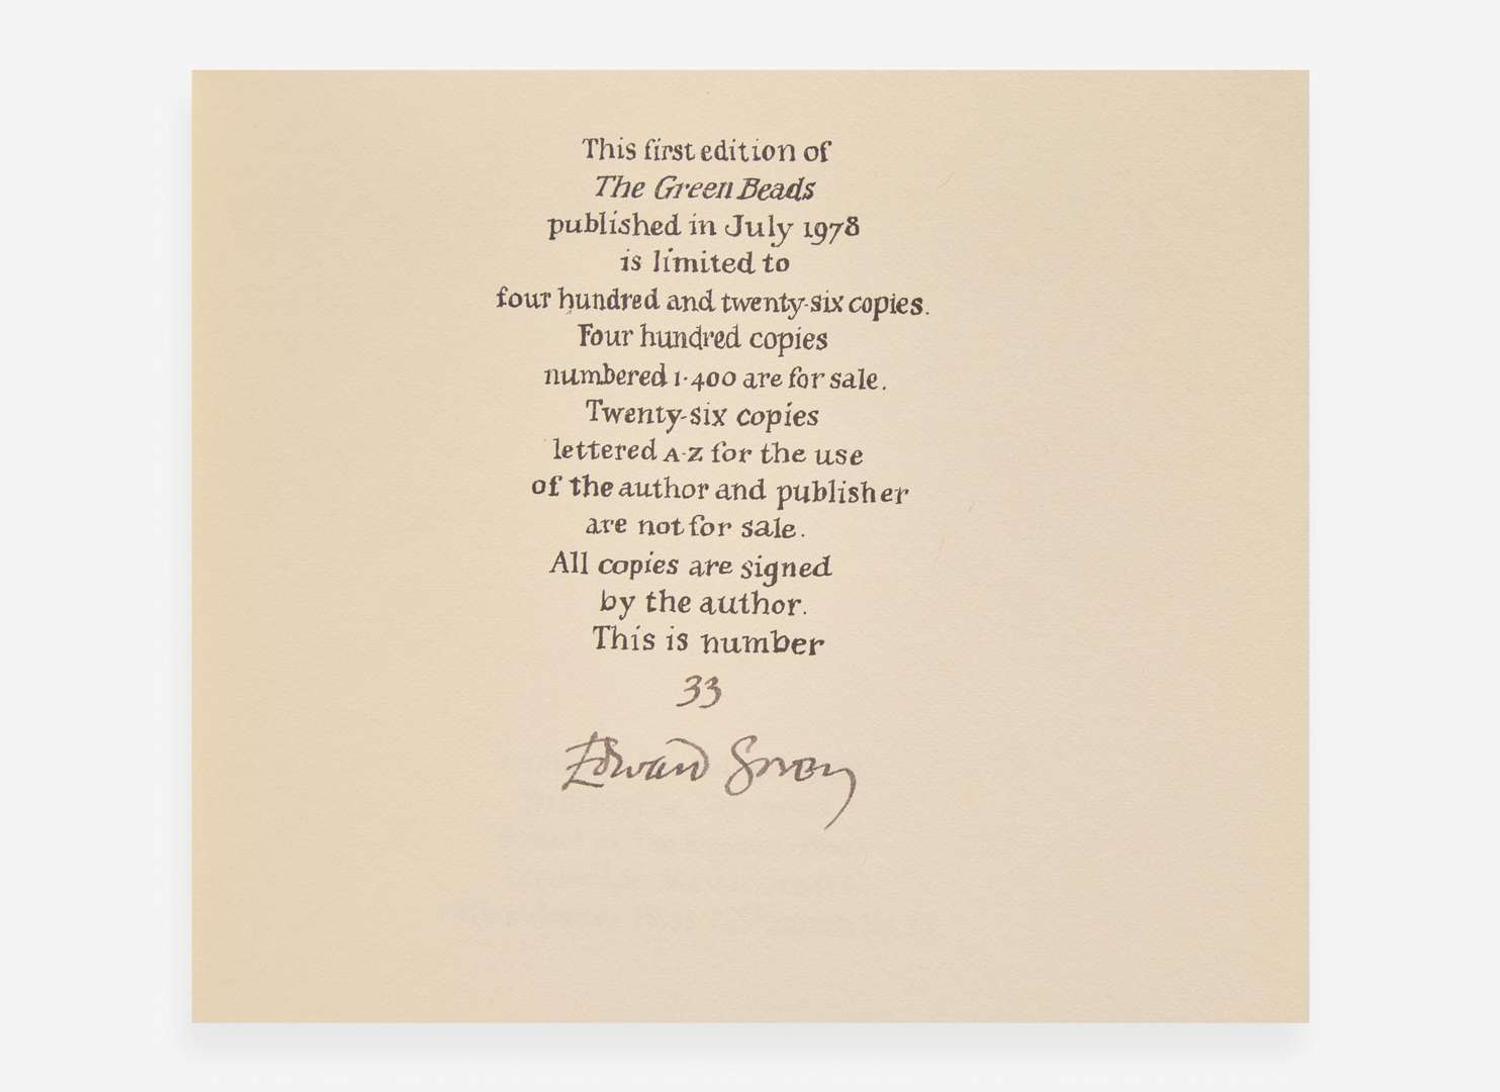 This first edition of
The Green Beads
published in July 1978
is limited to
four hundred and twenty-six copies.
Four hundred copies
numbered 1·400 are for sale.
Twenty-six copies
lettered A·Z for the use
of the author and publisher
are not for sale.
All copies are signed
by the author.
This is number
33
Edward Gorey